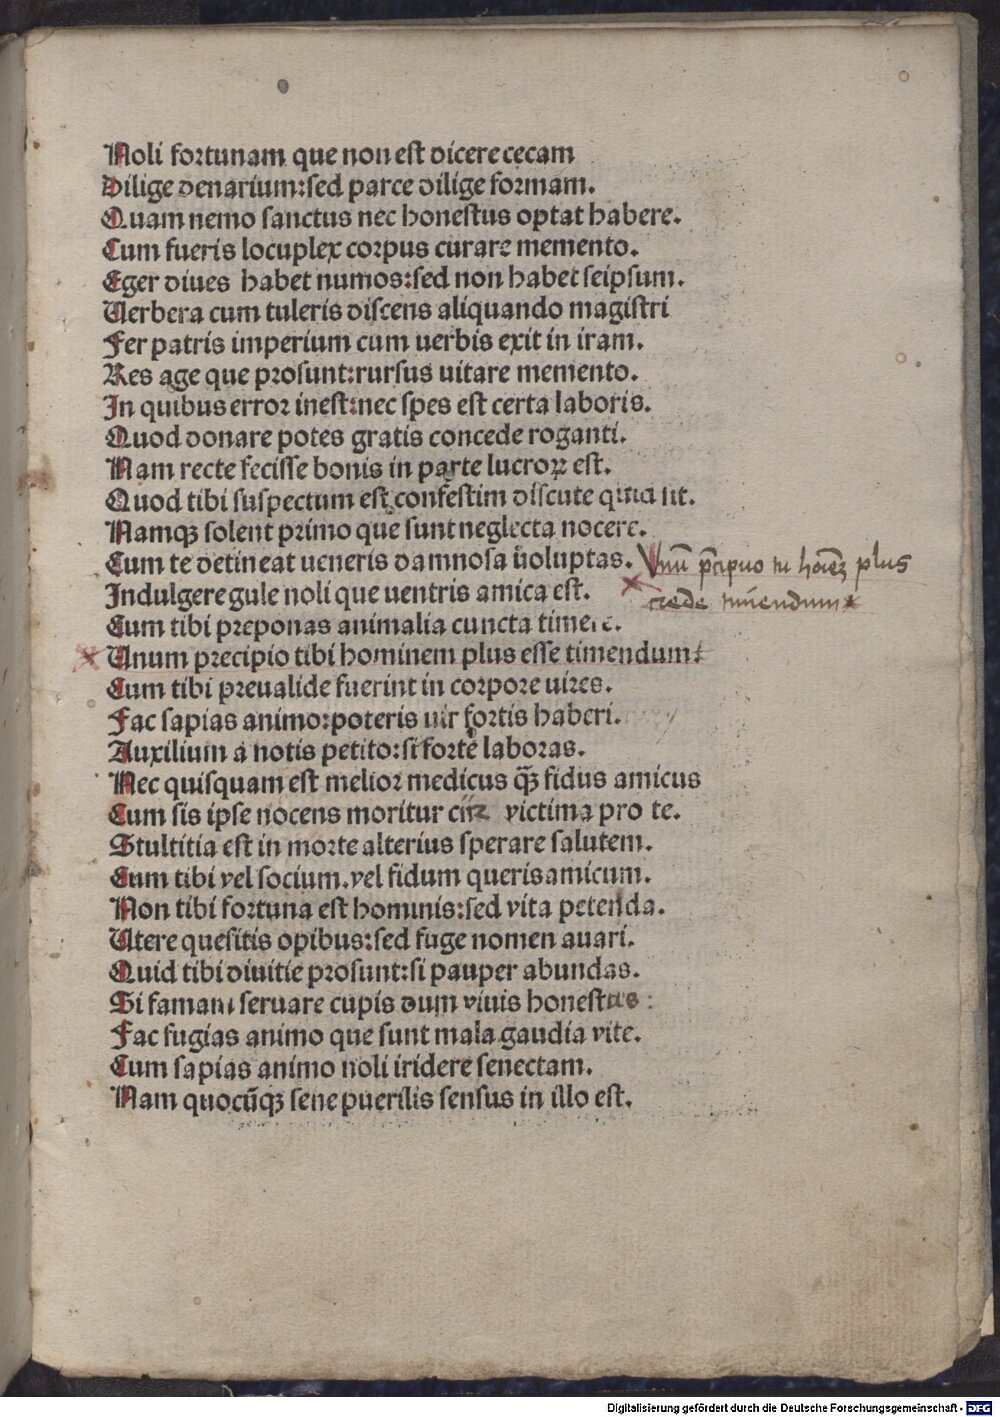 Noli fortunam que non est dicere cecam
Dilige denarium: sed parce dilige formam.
Quam nemo sanctus nec honestus optat habere.
Cum fueris locuplex corpus curare memento.
Eger diues habet numos: sed non habet seipsum.
Uerbera cum tuleris discens aliquando magistri
Fer patris imperium cum uerbis exit in iram.
Res age que prosunt: rursus uitare memento.
In quibus error inest: nec spes est certa laboris.
Quod donare potes gratis concede roganti.
Nam recte fecisse bonis in parte lucroꝝ est.
Quod tibi suspectum est confestim discute quid sit.
Namqꝫ solent primo que sunt neglecta nocere.
Cum te detineat ueneris damnosa uoluptas. Vnū p̄cipuo
Indulgere gule noli que uentris amica est.
Cum tibi preponas animalia cuncta timere.
Unum precipio tibi hominem plus esse timendum:
Cum tibi preualide fuerint in corpore uires.
Fac sapias animo: poteris uir fortis haberi.
Auxilium a notis petito: si forte laboras.
Nec quisquam est melior medicus qꝫ̄ fidus amicus
Cum sis ipse nocens moritur victima pro te.
Stultitia est in morte alterius sperare salutem.
Cum tibi vel socium. vel fidum queris amicum.
Non tibi fortuna est hominis: sed vita petenda.
Utere quesitis opibus: sed fuge nomen auari.
Quid tibi diuitie prosunt: si pauper abundas.
Si famam seruare cupis dum viuis honestas:
Fac fugias animo que sunt mala gaudia vite.
Cum sapias animo noli iridere senectam.
Nam quocūqꝫ sene puerilis sensus in illo est.
plus
Digitalisierung gefördert durch die Deutsche Forschungsgemeinschaft - DFG